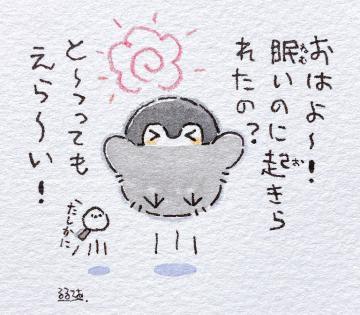 おはよ～！
眠いのに起きら
れたの？
と～っっても
えら～い！
たしかに
るるてあ